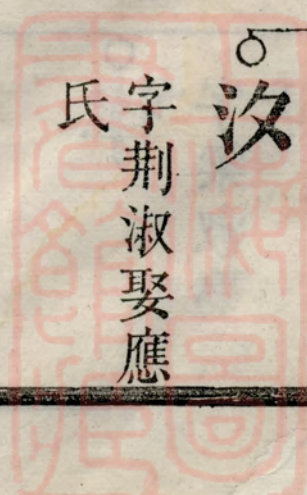 汷
字荆淑娶應
氏